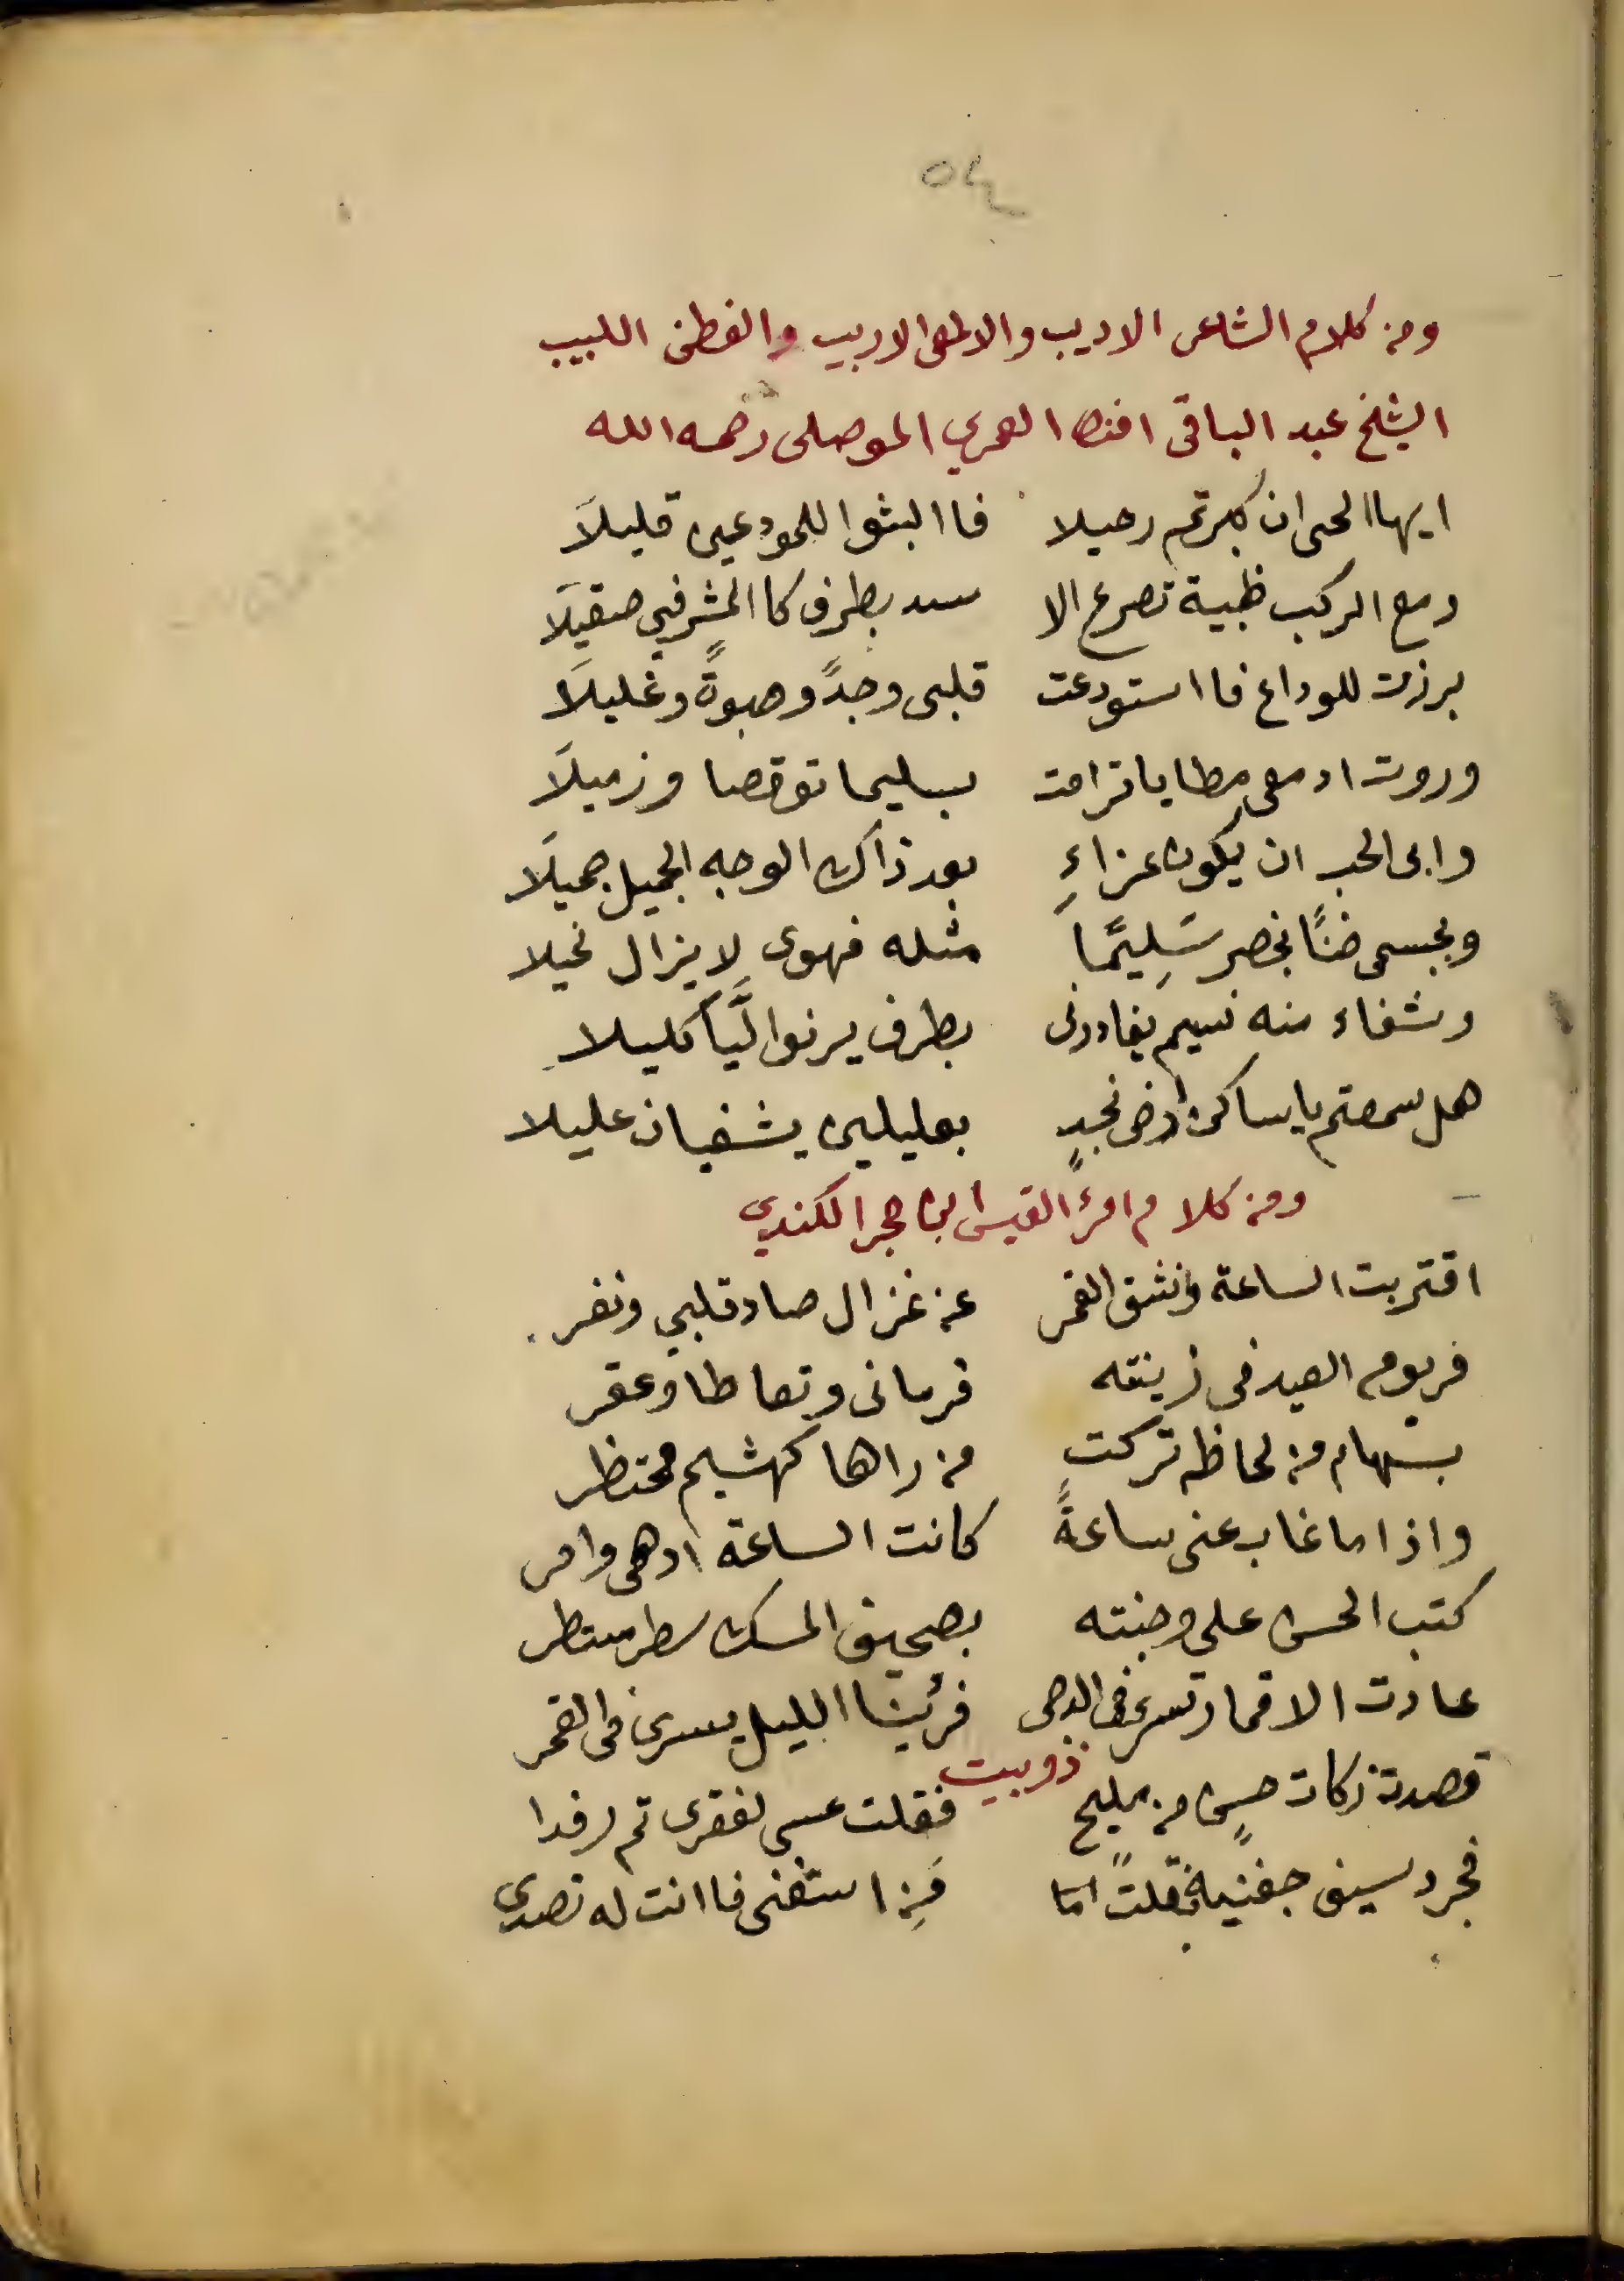 ومن كلام الشاعر الاديب والالمعي الاريب والفطن اللبيب
الشيخ عبد الباقي افندي العمري الموصلي رحمه الله
ايها الحي ان كبرتم رحيلا فاالبثوا للمودعين قليلاً
ومع الركب ظبية تصرع الا سد بطرف كاالمشرفيٍ صقيلاً
برزت للوداع فااستودعت قلبي وجدً وصبوةً وغليلاً
وروت ادمعي مطايا ترامت بسليما توقصا وزميلاً
وابى الحب ان يكون عزاءِ بعد ذاك الوجه الجميل جميلاً
وبجسمي ضنًا بخصر سَلِيَّما مثله فهوى لا يزال نحيلا
وشفاء منه نسيم يغادرني بطرف يرنوا ليَّا كليلا
هل سمعتم يا ساكن ارض نجدٍ بعليلين يشفيان عليلا
ومن كلام امرؤ القيس ابن حجر الكندي
اقتربت الساعة وانشق القمر عن غزال صاد قلبي ونفر
فريوم العيد في زينته فرماني وتعاطا وعقر
بسهام من لحاظه تركت من راها كهشيم محتظر
واذا ما غاب عني ساعةً كانت الساعة ادهى وامر
كتب الحسن على وجنته بصحيق المسك سطر مستطر
عادت الاقمار تسري في الدجى فرئينا الليل يسري في القمر
ذوبيت
قصدت زكات حسنٍ من مليح فقلت عسى لفقري تم رفدا
فجرد سيف جفنيهِ فقلت امًا مَنِ استغنى فاانت له تصدي